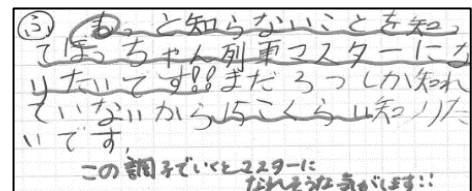 ふ もっと知らないことを知っ
てぼっちゃん列車マスターにな
りたいです!!まだろっしか知れ
ていないから15こくらい知りた
いです。
この調子でいくとマスターに
なれそうな気がします!!